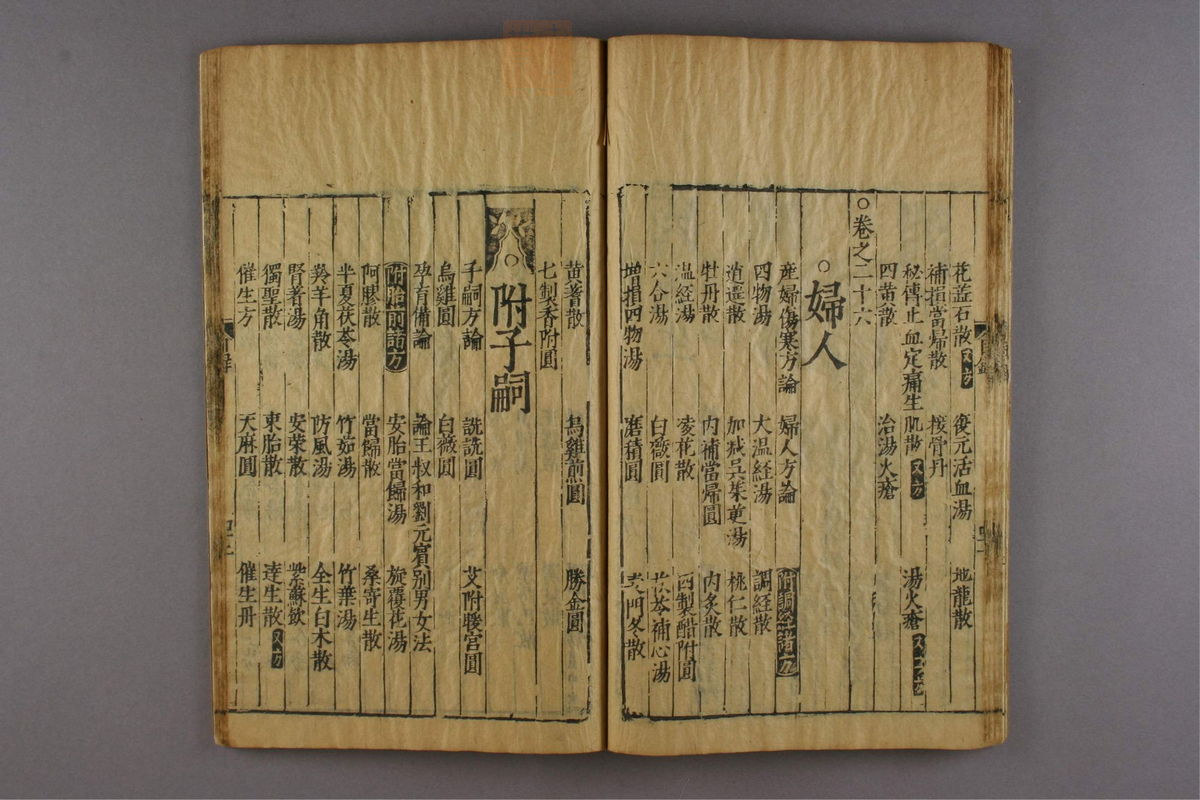 花蕋石散 又方 復元活血湯 地龍散
補損當歸散 接骨丹
秘傳止血定痛生肌散 又方 湯火瘡
四黃散 治湯火瘡
○卷之二十六
○婦人
産婦傷寒方論 婦人方論 附調經諸方
四物湯 大温経湯 調経散
逍遥散 加减吴茱萸湯 桃仁散
牡丹散 内補當帰圓 内炙散
温経湯 凌花散 四製醋附圓
六合湯 白薇圓 茯苓補心湯
增損四物湯 磨積圓 麦門冬散
黄蓍散 烏雞煎圓 勝金圓
七製香附圓
○附子嗣
子嗣方論 詵詵圓 艾附暖宮圓
烏雞圓 白薇圓
孕育備論 論王叔和劉元賓别男女法
附胎前諸方 安胎當歸湯 旋覆花湯
阿膠散 當歸散 桑寄生散
半夏茯苓湯 竹茹湯 竹葉湯
羚羊角散 防風湯 全生白术散
腎著湯 安榮散 紫蘇飲
獨聖散 束胎散 達生散 又方
催生方 天麻圓 催生丹